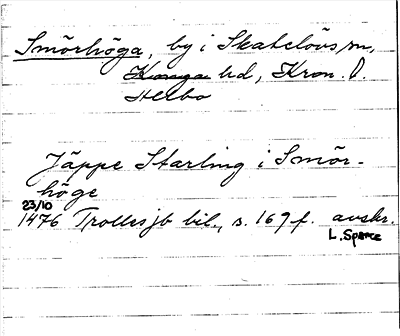 Smörhöga, by i Skatelövs sn,
Konga hd, Kron. l.
Allbo
Jäppe Starling i Smör-
höge
23/10
1476 Trolles jb bil., s. 169 f. avskr.
L. Sparre